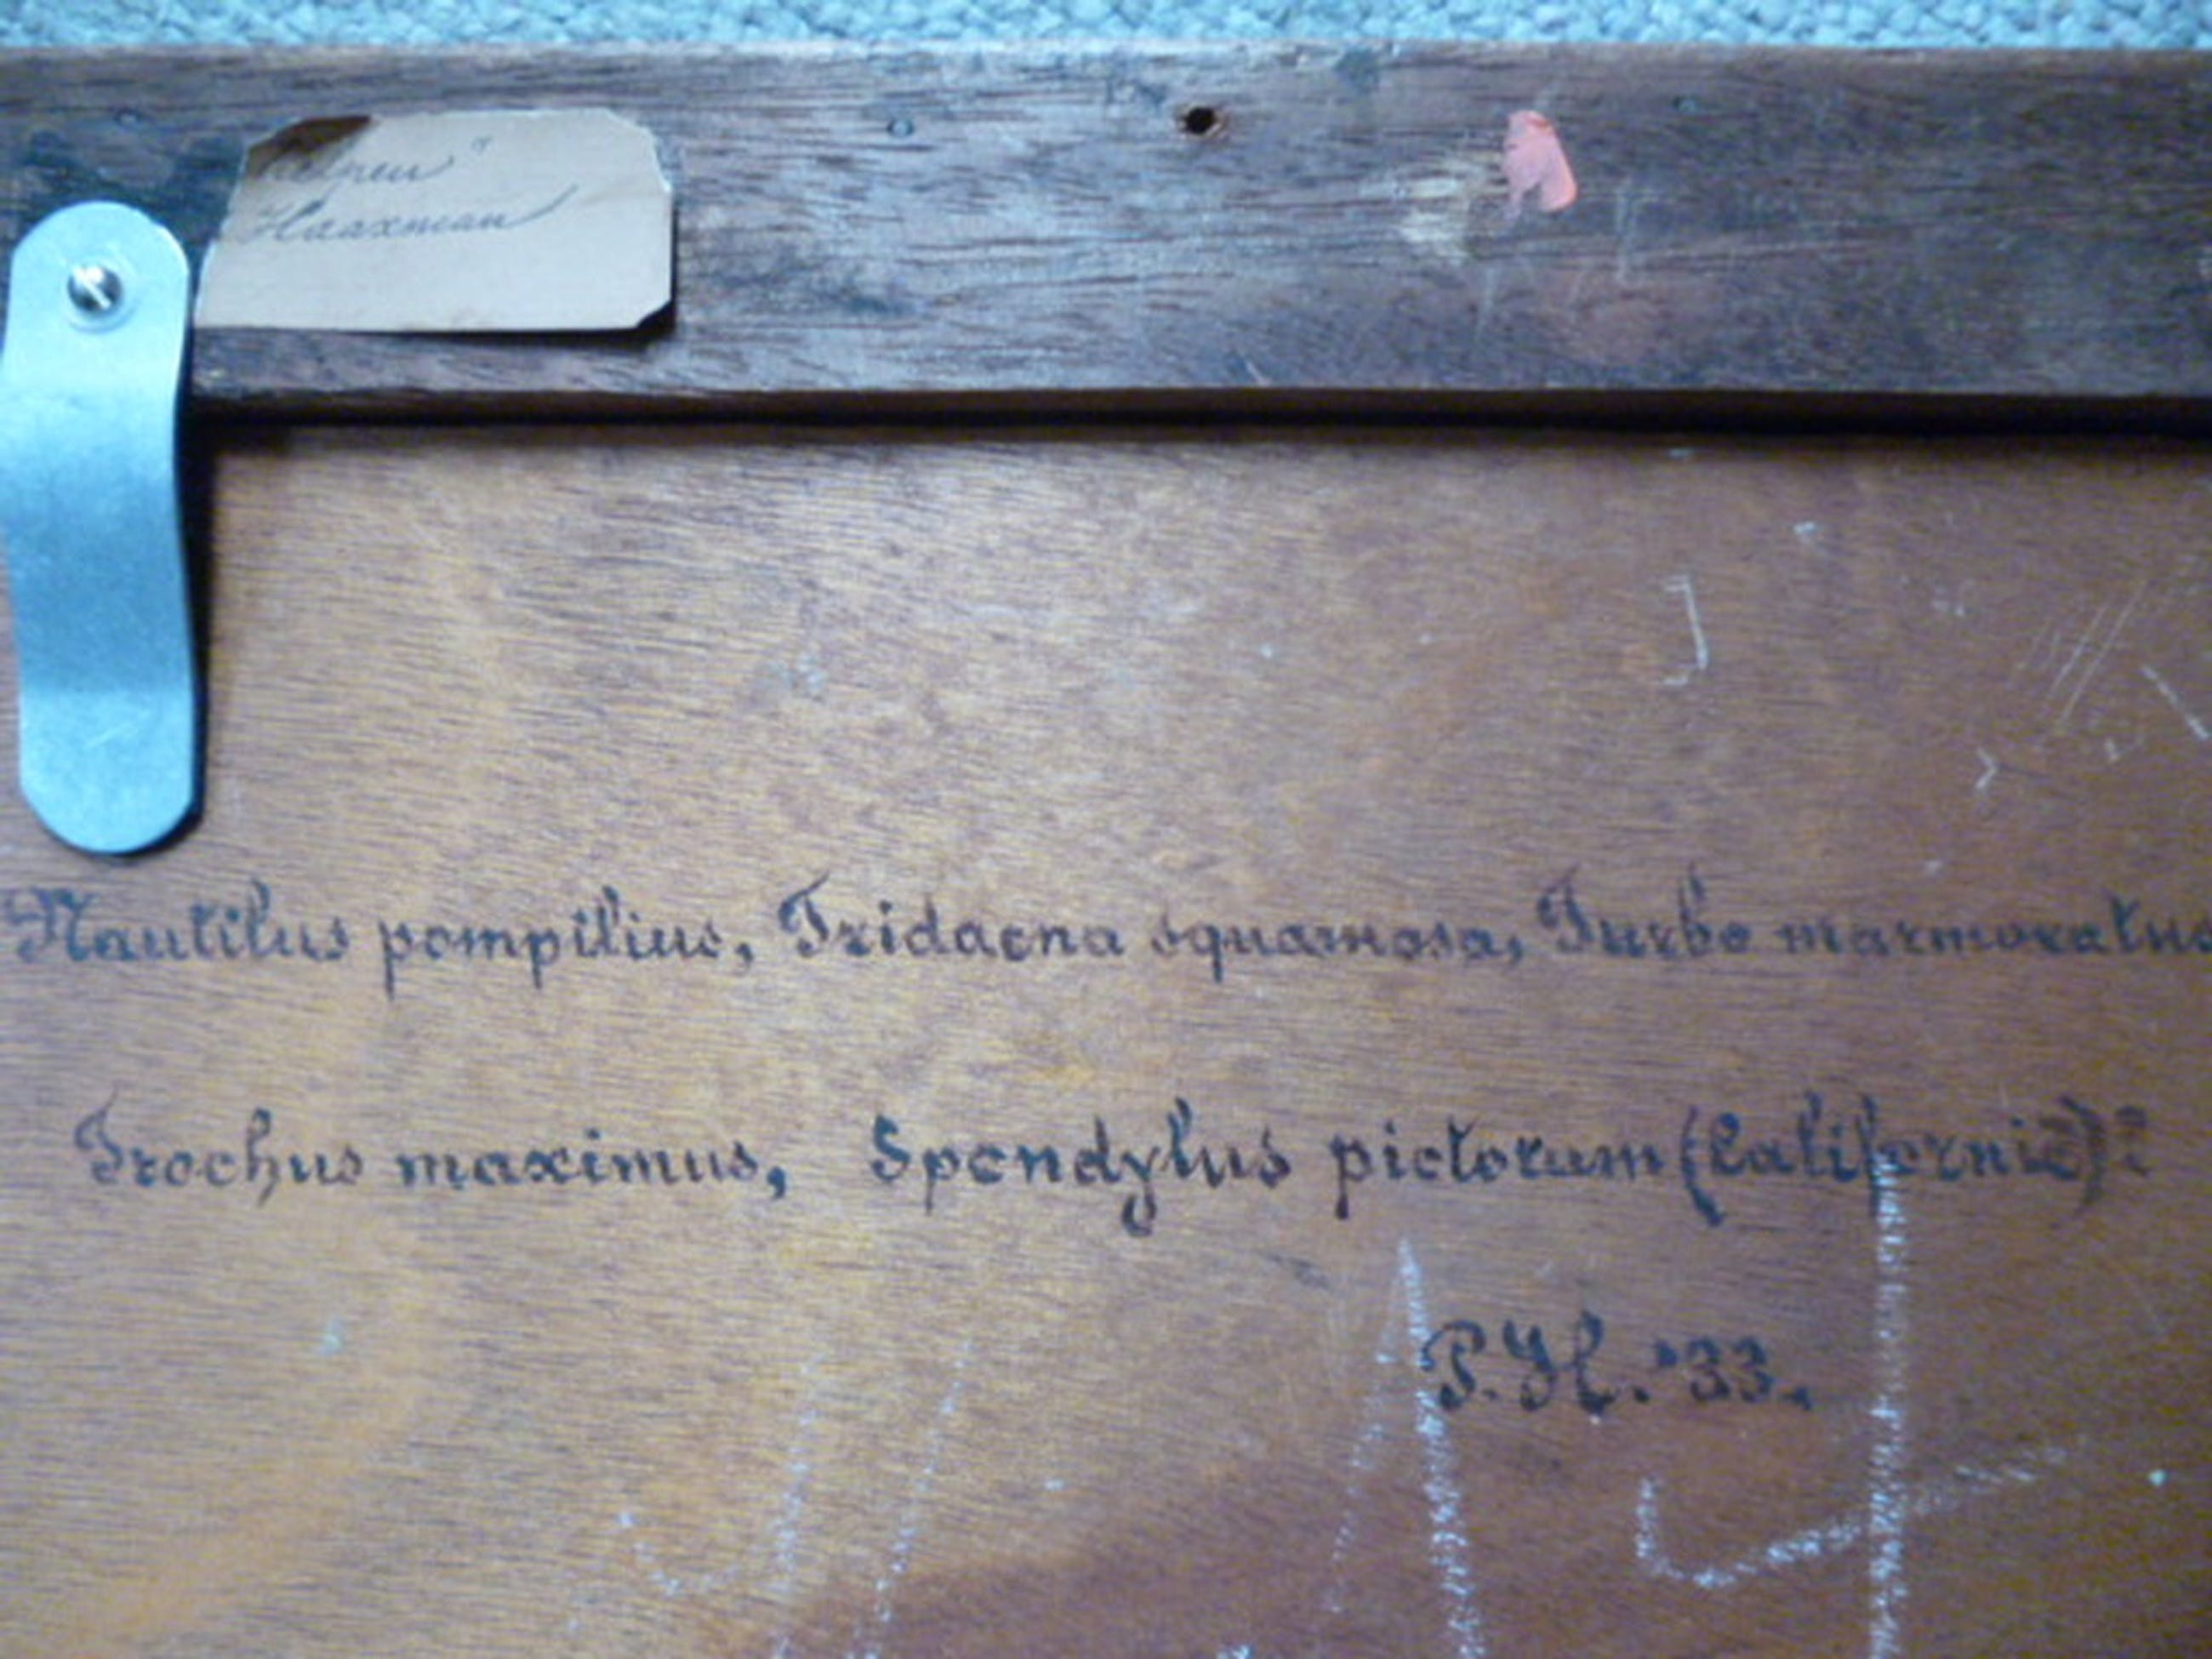 Haaxman
Nautilus pompilius, Tridacna squamosa, Turbo marmoratus
Trochus maximus, Spondylus pictorum (Californië)?
P.H. '33.